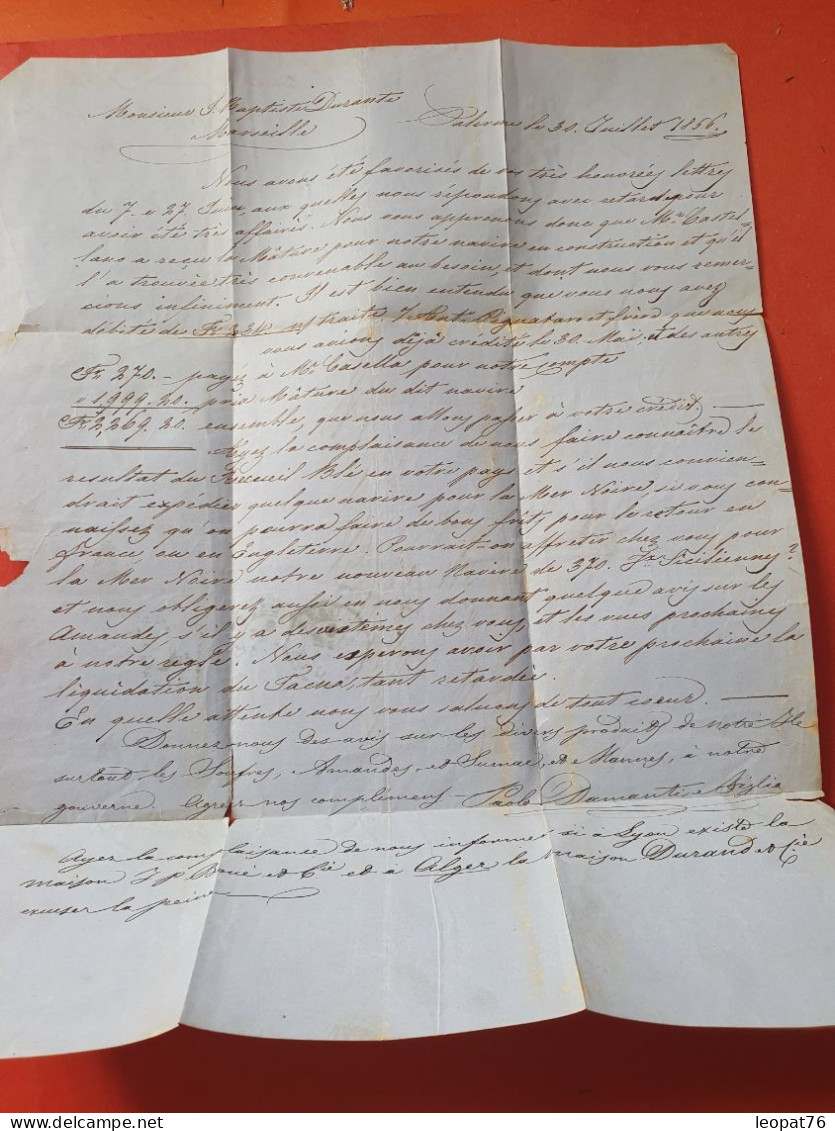 Monsieur J. Baptiste Durante
Marseille
Palerme le 30. Juillet 1856.
Nous avons été favorisés de vos très honorées lettres
du 7. e 27. Juin, aux quelles nous répondons avec retard pour
avoir été très affairés. Nous vous apprenons donc que Mr. Castel-
lano a reçu la Mâture pour notre navire en construction et qu'il
l'a trouvée très convenable au besoin, et dont nous vous remer-
cions infiniment. Il est bien entendu que vous nous avez
débité de Fr. 234. traite Pignataro et frère que nous
vous avions déjà crédité le 30. Mai, et des autres
Fr. 270. — payés à Mr. Casella pour notre compte
" 1,999. 20. prix Mâture du dit navire
Fr. 2,269. 20. ensemble, que nous allons passer à votre crédit. —
Ayez la complaisance de nous faire connaître le
resultat du Receueil Blé en votre pays et s'il nous convien-
drait expédier quelque navire pour la Mer Noire, si vous con-
naissez qu'on pourra faire de bons frêts pour le retour en
france ou en Engleterre. Pourrait-on affreter chez vous pour
la Mer Noire notre nouveau Navire de 370. Tx Siciliennes?
et nous obligerez aussi en nous donnant quelque avis sur les
Amandes, s'il y a des ventes chez vous, et les vues prochaines
à notre règle. Nous esperons avoir par votre prochaine la
liquidation du tant retardés.
En quelle attente nous vous saluons de tout coeur. —
Donnez-nous des avis sur les divers produits de notre Ile
surtout les Soufres, Amandes, et Sumac, et Mannes, à notre
gouverne. Agréez nos complimens — Paolo Damante e Figlio
Ayez la complaisance de nous informer si à Lyon existe la
maison J P Roué et Cie et à Alger la maison Durand et Cie
excusez la peine
leopat76